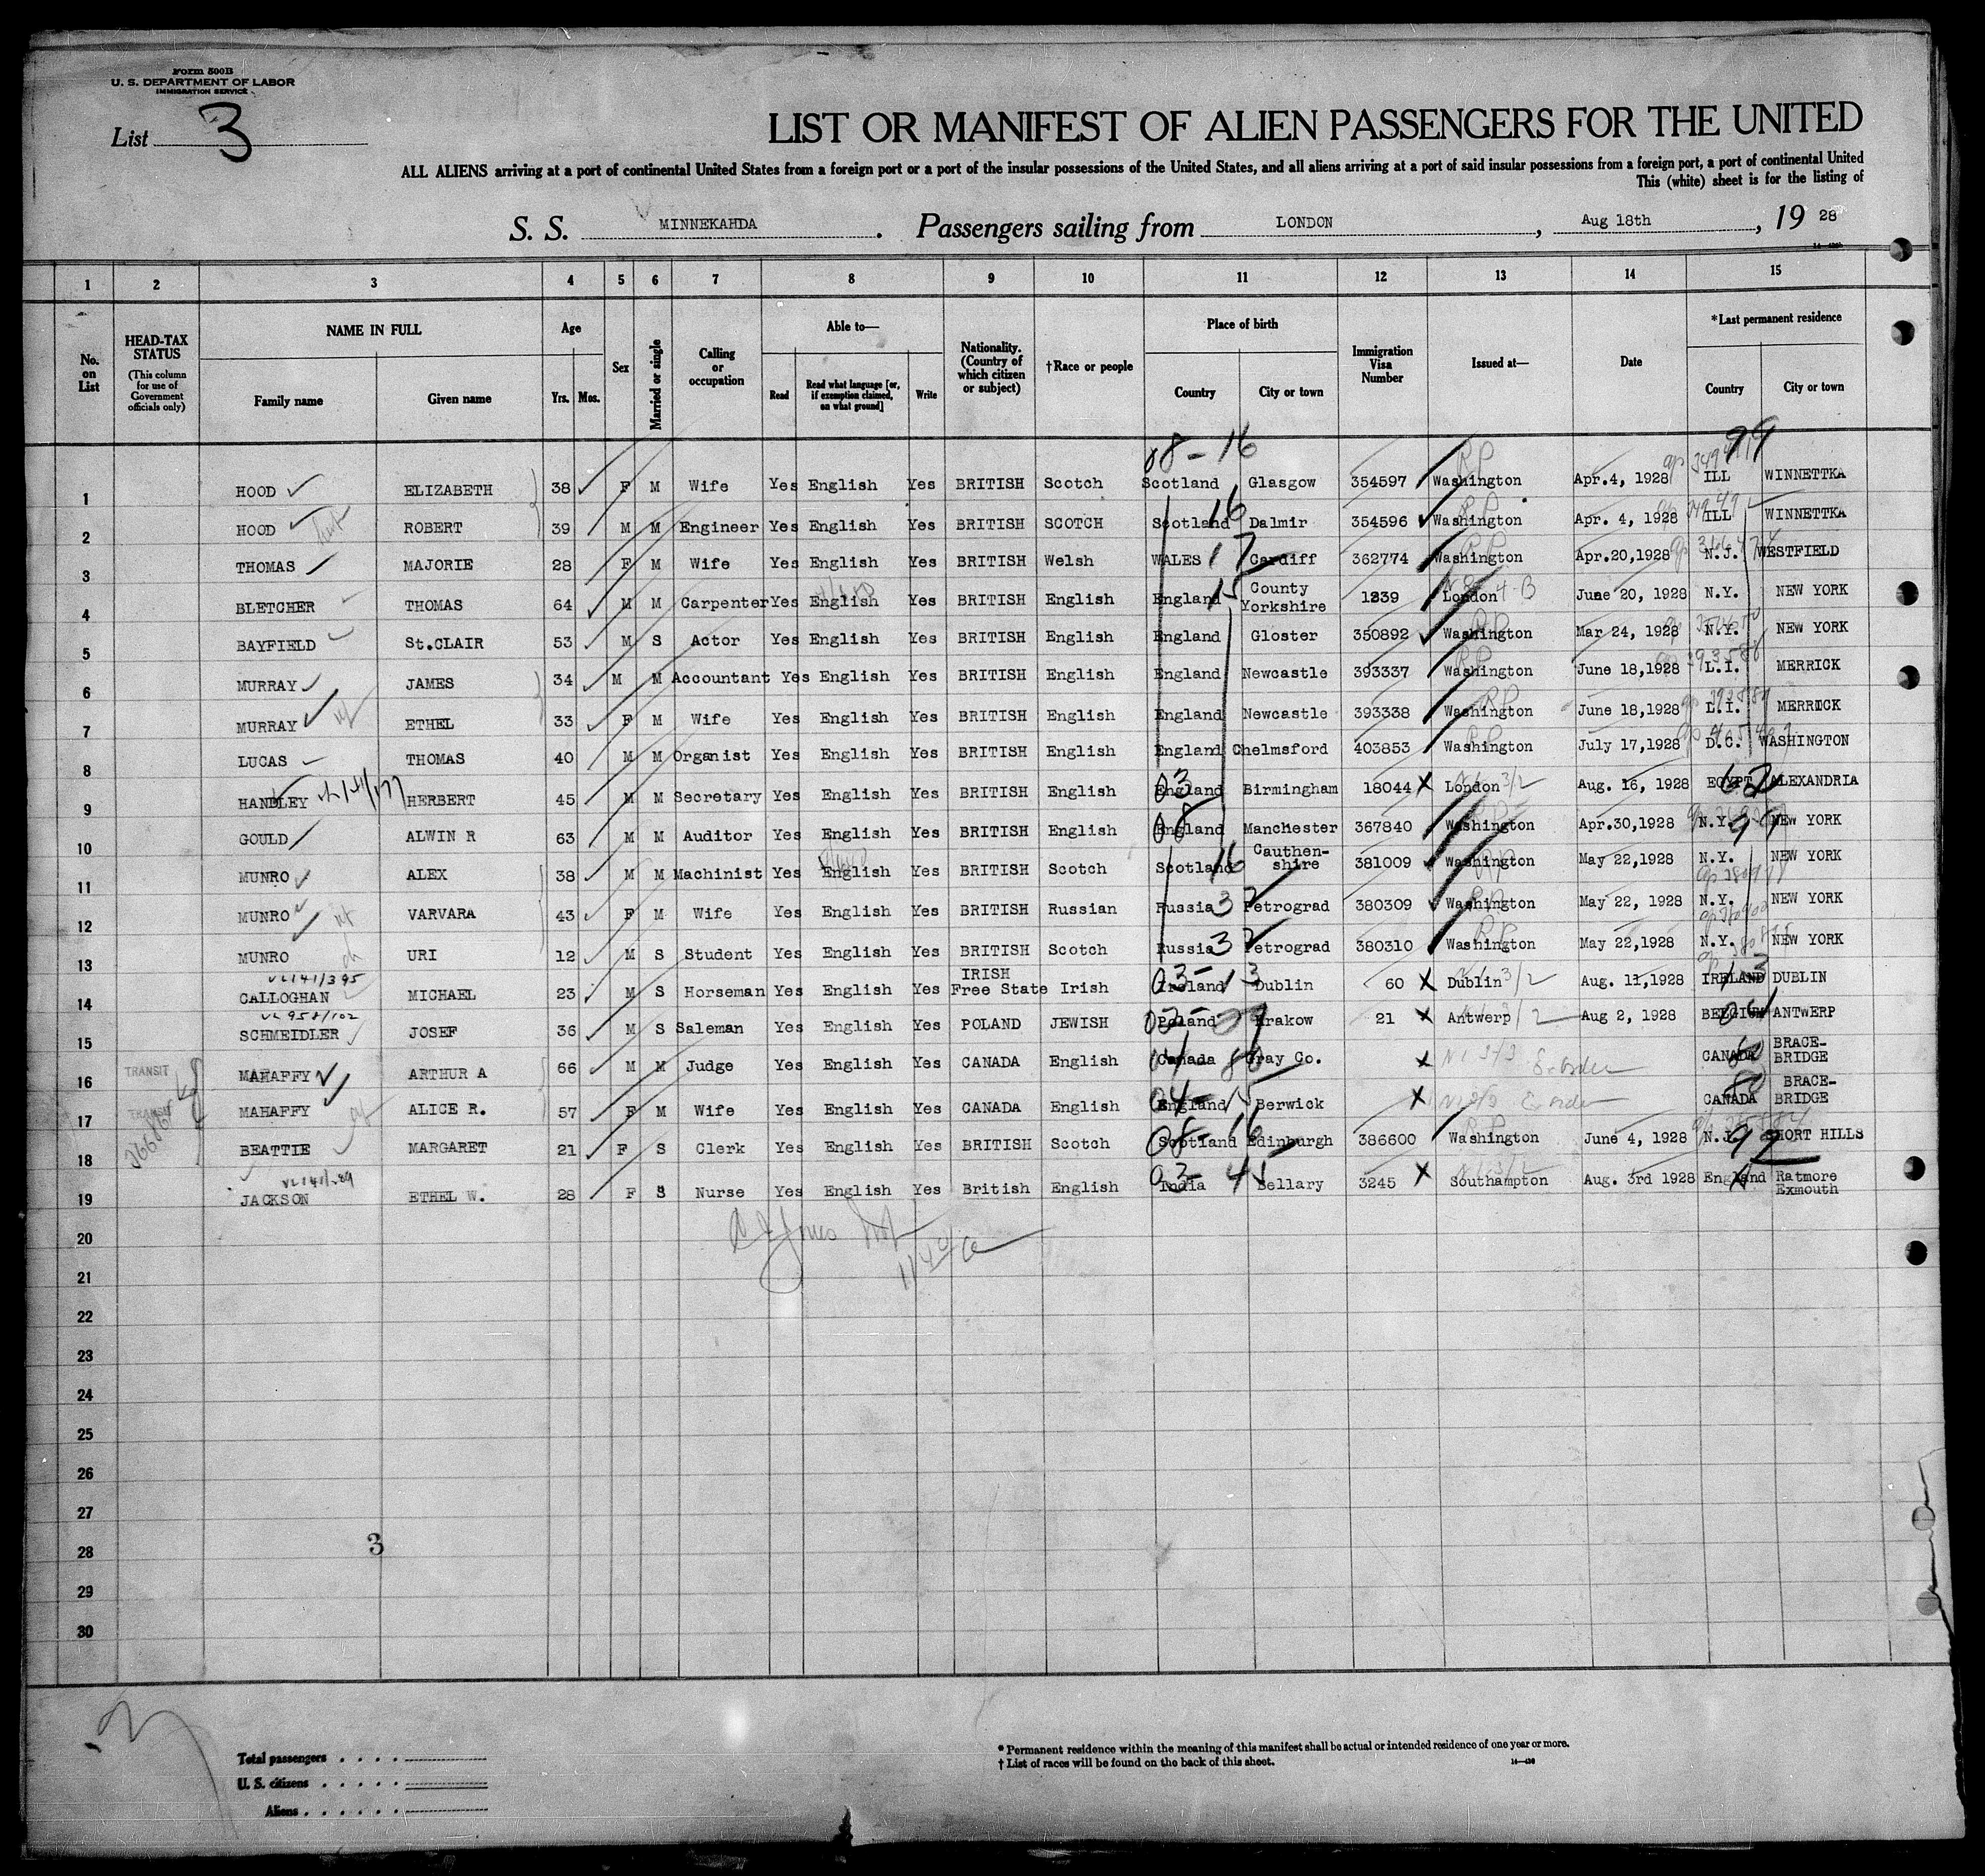 Form 500B
U. S. DEPARTMENT OF LABOR
IMMIGRATION SERVICE
List 3
LIST OR MANIFEST OF ALIEN PASSENGERS FOR THE UNITED
ALL ALIENS arriving at a port of continental United States from a foreign port or a port of the insular possessions of the United States, and all aliens arriving at a port of said insular possessions from a foreign port, a port of continental United
This (white) sheet is for the listing of
S. S. MINNEKAHDA. Passengers sailing from LONDON, Aug 18th, 19 28
1 2 3 4 5 6 7 8 9 10 11 12 13 14 15
No. on List
HEAD-TAX STATUS (This column for use of Government officials only)
NAME IN FULL Family name Given name
Age Yrs. Mos.
Sex
Married or single
Calling or occupation
Able to— Read Read what language [or, if exemption claimed, on what ground] Write
Nationality. (Country of which citizen or subject)
†Race or people
Place of birth Country City or town
Immigration Visa Number
Issued at—
Date
*Last permanent residence Country City or town
08-16 99
1 HOOD ELIZABETH 38 F M Wife Yes English Yes BRITISH Scotch Scotland Glasgow 354597 Washington Apr.4, 1928 ILL WINNETTKA
2 HOOD ROBERT 39 M M Engineer Yes English Yes BRITISH SCOTCH Scotland 16 Dalmir 354596 Washington Apr. 4, 1928 ILL WINNETTKA
3 THOMAS MAJORIE 28 F M Wife Yes English Yes BRITISH Welsh WALES 17 Cardiff 362774 Washington Apr.20,1928 N.J. WESTFIELD
4 BLETCHER THOMAS 64 M M Carpenter Yes English Yes BRITISH English England 15 County Yorkshire 1239 London June 20, 1928 N.Y. NEW YORK
5 BAYFIELD St.CLAIR 53 M S Actor Yes English Yes BRITISH English England Gloster 350892 Washington Mar 24, 1928 N.Y. NEW YORK
6 MURRAY JAMES 34 M M Accountant Yes English Yes BRITISH English England Newcastle 393337 Washington June 18,1928 L.I. MERRICK
7 MURRAY ETHEL 33 F M Wife Yes English Yes BRITISH English England Newcastle 393338 Washington June 18,1928 L.I. MERRICK
8 LUCAS THOMAS 40 M M Organist Yes English Yes BRITISH English England Chelmsford 403853 Washington July 17,1928 D.C. WASHINGTON
9 HANDLEY HERBERT 45 M M Secretary Yes English Yes BRITISH English England 03 Birmingham 18044 X London 3/2 Aug. 16, 1928 EGYPT ALEXANDRIA
10 GOULD ALWIN R 63 M M Auditor Yes English Yes BRITISH English England 08 Manchester 367840 Washington Apr.30,1928 N.Y. 99 NEW YORK
11 MUNRO ALEX 38 M M Machinist Yes English Yes BRITISH Scotch Scotland 16 Cauthen-shire 381009 Washington May 22,1928 N.Y. NEW YORK
12 MUNRO VARVARA 43 F M Wife Yes English Yes BRITISH Russian Russia Petrograd 380309 Washington May 22, 1928 N.Y. NEW YORK
13 MUNRO URI 12 M S Student Yes English Yes BRITISH Scotch Russia Petrograd 380310 Washington May 22,1928 N.Y. NEW YORK
14 CALLOGHAN MICHAEL 23 M S Horseman Yes English Yes IRISH Free State Irish Ireland 03-13 Dublin 60 X Dublin 3/2 Aug. 11,1928 IRELAND DUBLIN
15 SCHMEIDLER JOSEF 36 M S Saleman Yes English Yes POLAND JEWISH Poland Krakow 21 X Antwerp Aug 2, 1928 BELGIUM ANTWERP
16 TRANSIT MAHAFFY ARTHUR A 66 M M Judge Yes English Yes CANADA English Canada Gray Co. X CANADA BRACE-BRIDGE
17 TRANSIT MAHAFFY ALICE R. 57 F M Wife Yes English Yes CANADA English England 04-15 Berwick X CANADA BRACE-BRIDGE
18 BEATTIE MARGARET 21 F S Clerk Yes English Yes BRITISH Scotch Scotland 08-16 Edinburgh 386600 Washington June 4, 1928 N.J. SHORT HILLS
19 JACKSON ETHEL W. 28 F S Nurse Yes English Yes British English India 03-45 Bellary 3245 X Southampton Aug. 3rd 1928 England Ratmore Exmouth
20
21
22
23
24
25
26
27
28
29
30
3
Total passengers
U. S. citizens
Aliens
* Permanent residence within the meaning of this manifest shall be actual or intended residence of one year or more.
† List of races will be found on the back of this sheet.